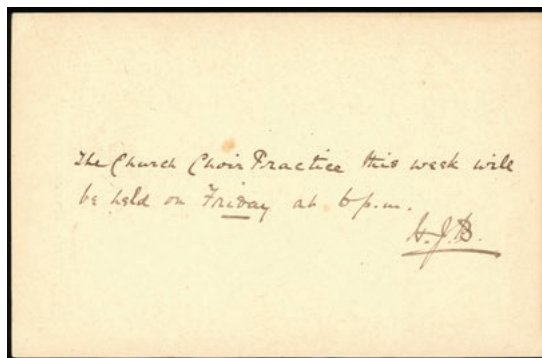 The Church Choir Practice this week will
be held on Friday at 6 p.m.
H.J.B.